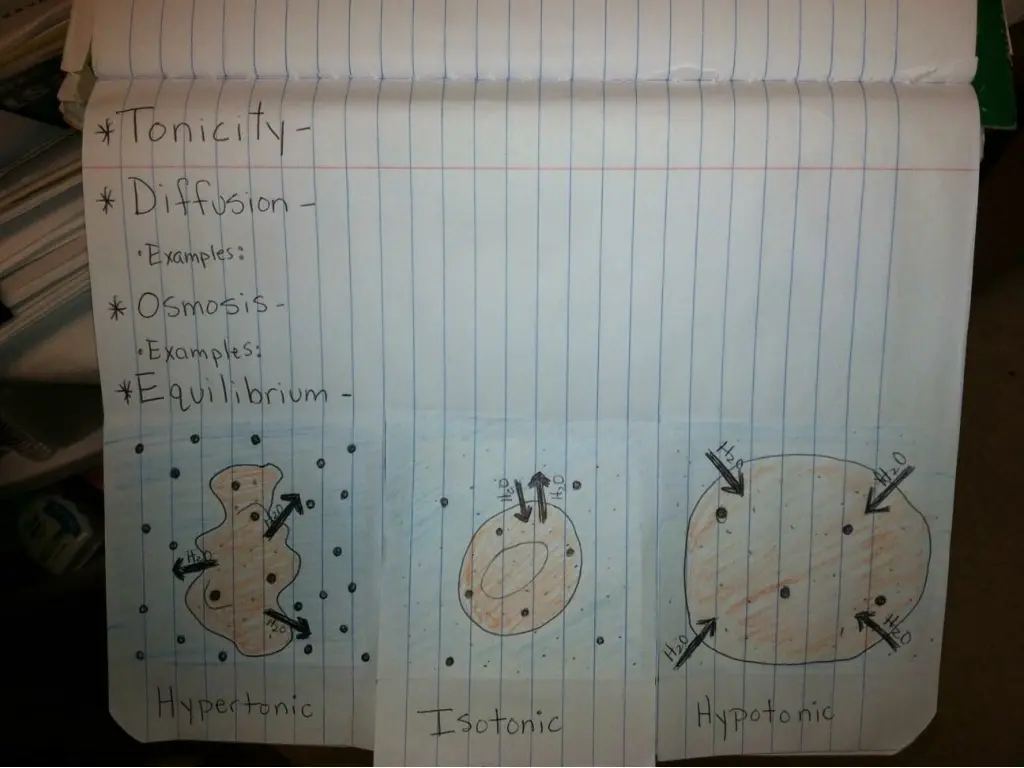 *Tonicity-
*Diffusion-
•Examples:
*Osmosis-
•Examples:
*Equilibrium-
H2O
H2O
H2O
H2O
H2O
H2O
H2O
H2O
H2O
Hypertonic
Isotonic
Hypotonic